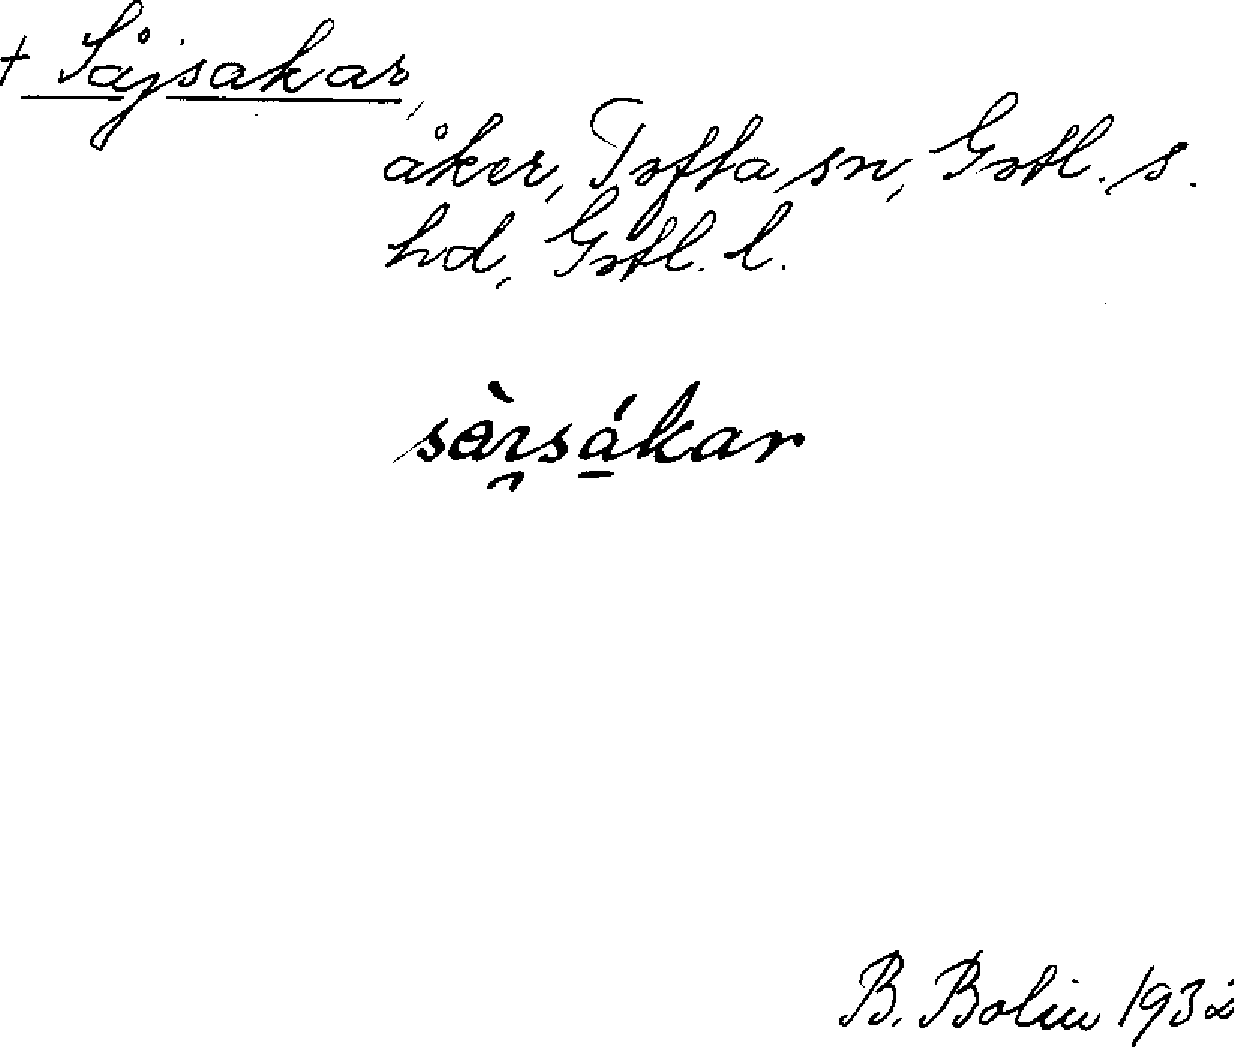 + Såjsakar,
åker, Tofta sn, Gotl. s.
hd, Gotl. l.
B. Bolin 1932